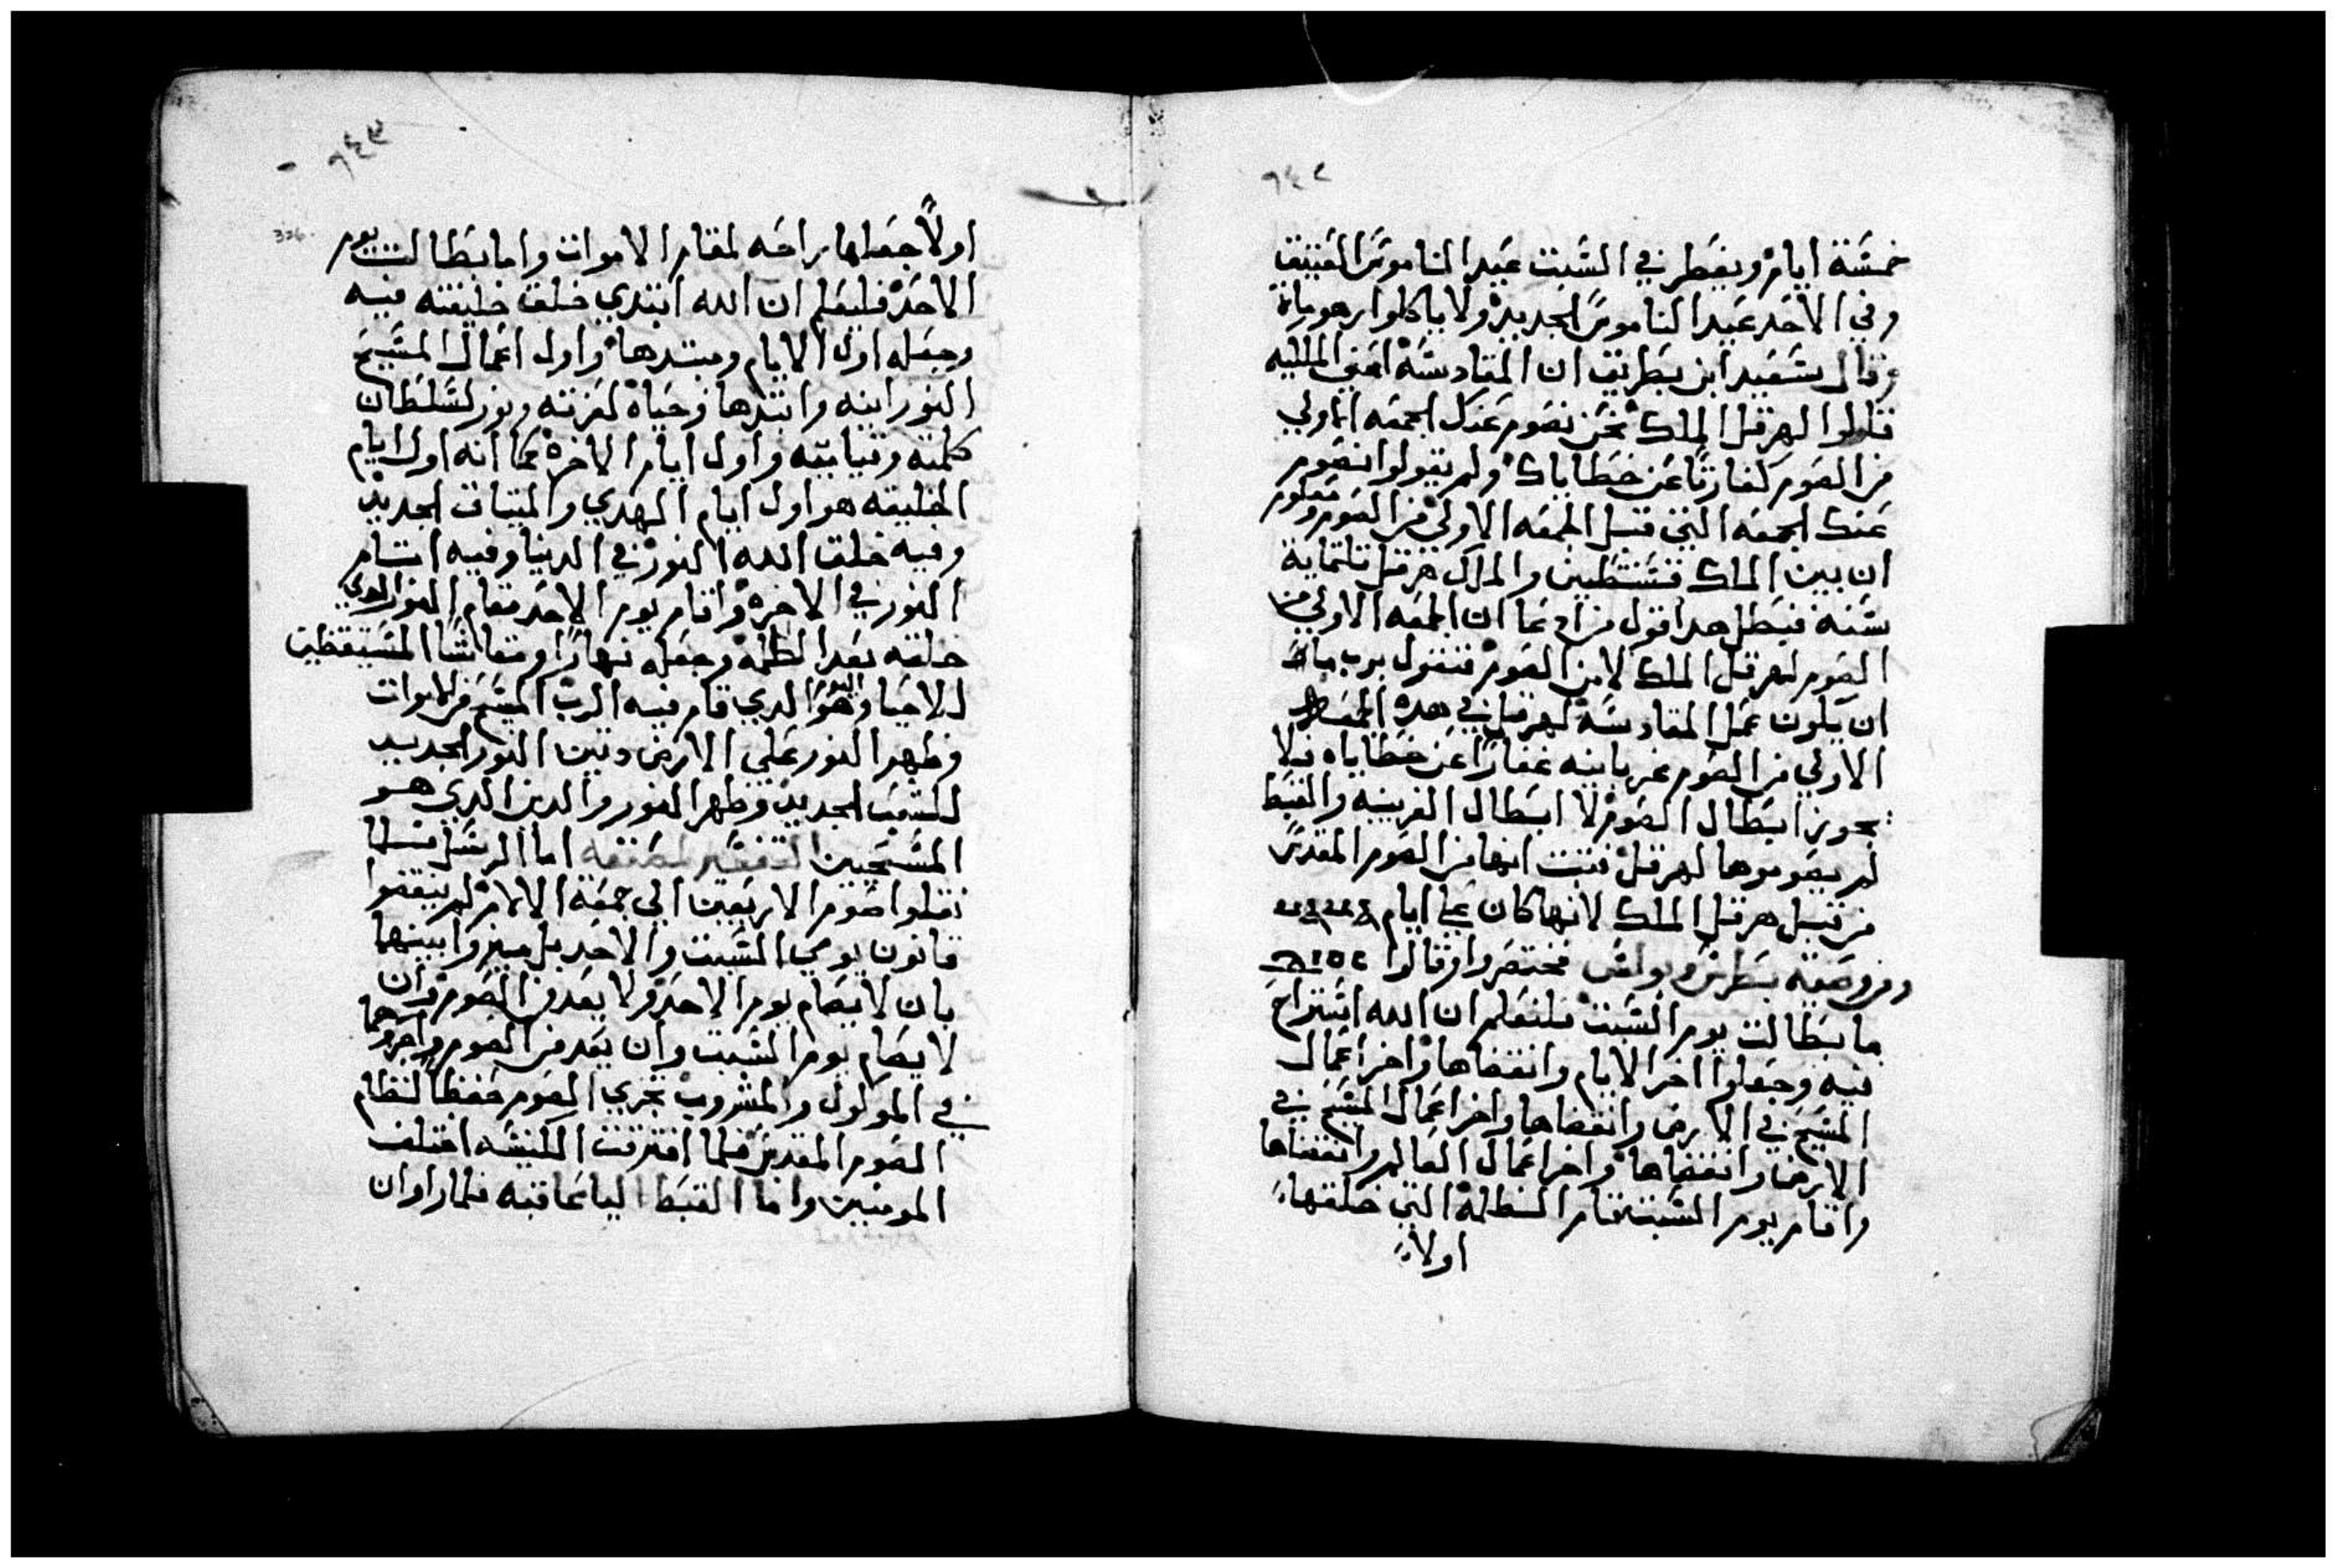 ٦٤٢
خمسَة ايام ويفطر في السَبت عَيد الناموسَ العَتيق
وفي الاحَد عَيد الناموسَ الجديد ولا ياكلوا زهوماة
وقال سَعَيد ابن بطريق ان المقادسَة اعَني الملكيه
قالوا لهرقل الملك نحَن نصَوم عَنك الجمعَه الاولي
من الصَوم كفارتًا عَن خطاياك ولم يقولوا نصَوم
عَنك الجمعَه التي قبل الجمعَه الاولي من الصَوم ومعلوم
ان بين الملك قسَنطين والملك هرقل تلتماية
سَنه فبطل هدا قول من ادعَا ان الجمعَه الاولي من
الصَوم لهرقل الملك لا من الصَوم فنقول برب ما
ان يكون عَمل المقادسَة لهرقل في هده الجمعَه
الاولي من الصَوم عَربانيه غفارًا عَن خطاياه فلا
يجوز ابطال الصَوم لا ابطال الفرينيه والقبط
لم يصَوموها لهرقل فتبت انها من الصَوم المقدسَ
من قبل هرقل الملك لانها كان عَلي ايام
ومن وصَية بطرسَ وبولسَ مختصَر وقالوا
ما بطالت يوم السَبت فلنعَلم ان الله استراح
فيه وجعَلوا اخر الايام وانقضاها واخر اعَمال
المسَيح في الارض وانقضاها واخر اعَمال المسَيح في
الارض وانقضاها واخر اعَمال العَالم وانقضاها
واقام يوم السَبت مقام الظلمة التي خلقها
اولا
٦٤٣
326
اولاً جعَلها راحَه لمقام الاموات واما بطالت يوم
الاحَد فليعَلم ان الله ابتدي خلق خليقته فيه
وجعَله اول الايام ومبتدها واول اعَمال المسَيح
النور ابنه وابتدها وحَياة لعَزته ونور لسَلطان
كلمته وتيابته واول ايام الاخرة كما انه اول ايام
الخليقه هو اول ايام الهدي والميتاق الجديد
وفيه خلق الله النور في الدنيا وفيه اتسام
النور في الاخرة واقام يوم الاحَد مقام النور الدي
خلقه بعَد الظلمة وجعَله نهارًا ومعَاشًا المسَتيقظين
للاحيا وهو اليوم الدي قام فيه الرب المسَيح من الاموات
وظهر النور عَلي الارض وتبين النور الجديد
للشعَب الجديد وظهر النور والدين الدي هو
المسَيحَيين التفسَير لمصَنفه اما الرسَل فلما
نقلوا صَوم الاربعَين الي جمعَة الالام لم ينقضوا
قانون يومي السَبت والاحَد بل ميزوا بينهما
بان لا يصَام يوم الاحَد ولا يعَد من الصَوم وان
لا يصَام يوم السَبت وان يعَد من الصَوم واجروهما
في الموكول والمشروب مجري الصَوم حفظًا لنظام
الصَوم المقدسَ فلما افترقت الكنيسَه اختلف
المومنين واما القبط اليعَاقبه فلما راوا ان